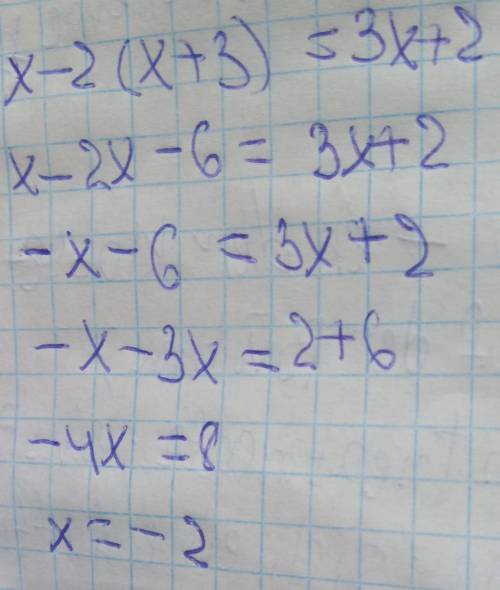 x-2(x+3) = 3x+2
x-2x-6 = 3x+2
-x-6 = 3x+2
-x-3x = 2+6
-4x = 8
x = -2